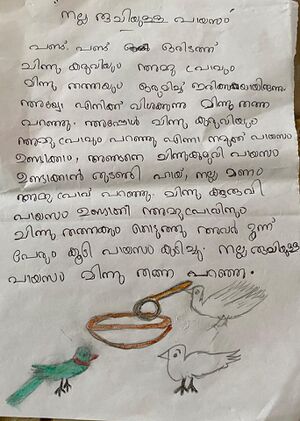 "നല്ല രുചിയുള്ള പായസം"
പണ്ട് പണ്ട് ഒരിടത്ത്
ചിന്നു കുരുവിയും അമ്മു പ്രാവും
മിന്നു തത്തയും ഒരുമിച്ച്
അയ്യോ എനിക്ക് വിശക്കുന്നു മിന്നു തത്ത
പറഞ്ഞു. അപ്പോൾ ചിന്നു കുരുവിയും
അമ്മു പ്രാവും പറഞ്ഞു എന്നാ നമുക്ക് പായസം
ഉണ്ടാക്കാം, അങ്ങനെ ചിന്നുകുരുവി പായസം
ഉണ്ടാക്കാൻ തുടങ്ങി ഹായ്, നല്ല മണം
അമ്മു പ്രാവ് പറഞ്ഞു. ചിന്നു കുരുവി
പായസം ഉണ്ടാക്കി അമ്മുപ്രാവിനും
മിന്നു തത്തക്കും കൊടുത്തു അവർ മൂന്ന്
പേരും കൂടി പായസം കുടിച്ചു. നല്ല രുചിയുള്ള
പായസം മിന്നു തത്ത പറഞ്ഞു.